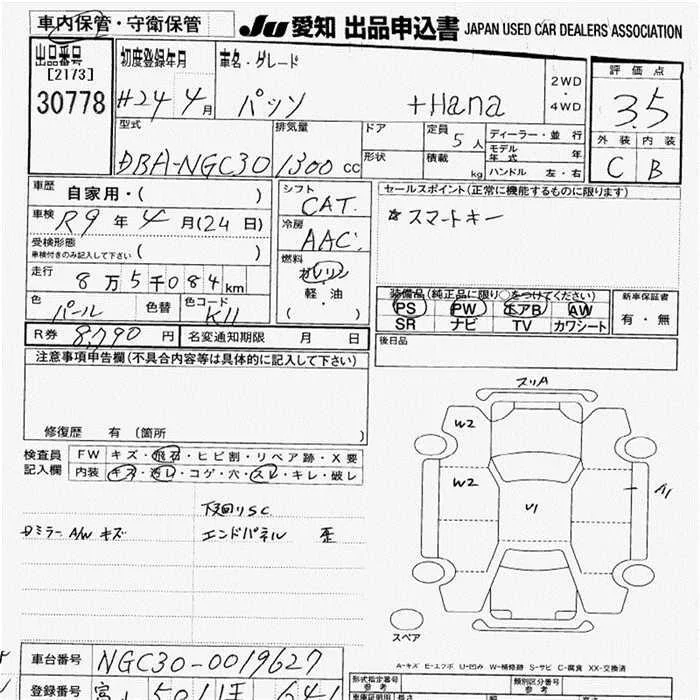 車内保管・守衛保管
JU 愛知 出品申込書 JAPAN USED CAR DEALERS ASSOCIATION
出品番号
[2173]
30778
初度登録年月
H24 4月
車名・グレード
パッソ +Hana
2WD
・
4WD
評価点
3.5
外装 内装
C B
型式
DBA-NGC30
排気量
1300 cc
ドア
形状
定員 5人
積載 kg
ディーラー・並 行
モデル年式 年
ハンドル 左・右
車歴 自家用・( )
車検 R9年 4月(24日)
受検形態
車検付きのみ記入して下さい ( )
走行 8万5千084km
色 パール 色替 色コード K11
シフト CAT.
冷房 AAC.
燃料
ガソリン
・
軽・油
( )
セールスポイント(正常に機能するものに限ります)
☆ スマートキー
装備品(純正品に限り○をつけてください)
PS PW エアB AW
SR ナビ TV カワシート
新車保証書
有・無
R券 8,790 円 名変通知期限 月 日
後日品
注意事項申告欄(不具合内容等は具体的に記入して下さい)
修復歴 有 〔箇所 〕
検査員
記入欄
FW キズ・飛石・ヒビ割・リペア跡・X要
内装 キズ・汚レ・コゲ・穴・スレ・キレ・破レ
下廻りSC
Dミラー A/W キズ エンドパネル 歪
スリA
W2
W2
U1
A1
スペア
A-キズ E-エクボ U-凹み W-補修跡 S-サビ C-腐食 XX-交換済
車台番号 NGC30-0019627
登録番号
形式指定番号
参考
類別区分番号
参考